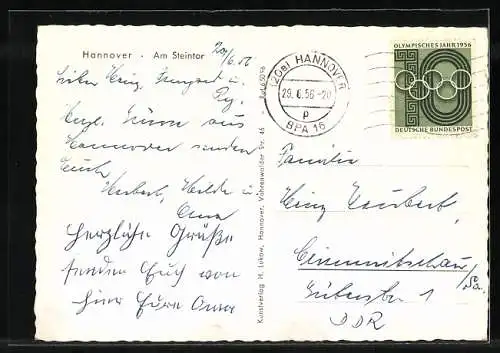 Hannover · Am Steintor
29/6.56
Lieber Heinz, Irmgard u.
Reg.
Herzl. Grüsse aus
Hannover senden
Euch
Herbert, Hilde u
Oma
Herzliche Grüße
senden Euch von
hier Eure Oma
Kunstverlag H. Lukow, Hannover, Vahrenwalder Str. 46
(20a) HANNOVER
29.6.56-20
p
BPA 16
OLYMPISCHES JAHR 1956
DEUTSCHE BUNDESPOST
Familie
Heinz Neubert,
Crimmitschau/Sa.
1
DDR